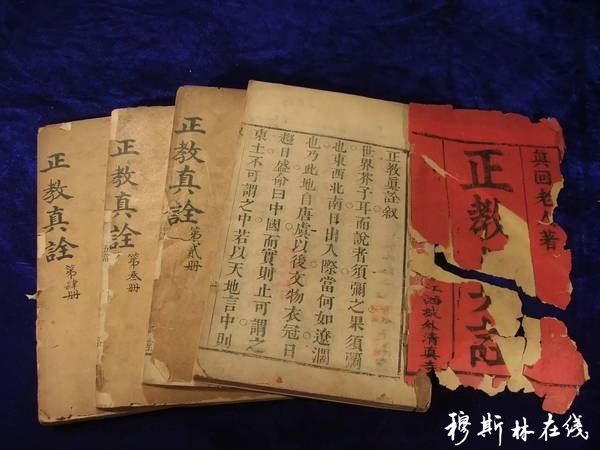 正教真詮
第肆冊
正教真詮
第叁冊
正教真詮
第貳冊
正教眞詮叙
世界芥子耳而說者須彌之果須彌
也東西北南日出入際當何如遼濶
也乃此地自唐虞以後文物衣冠日
趨日盛僉曰中國而實則止可謂之
東土不可謂之中若以天地言中則
眞回老人著
正教
城外清真寺
穆斯林在线